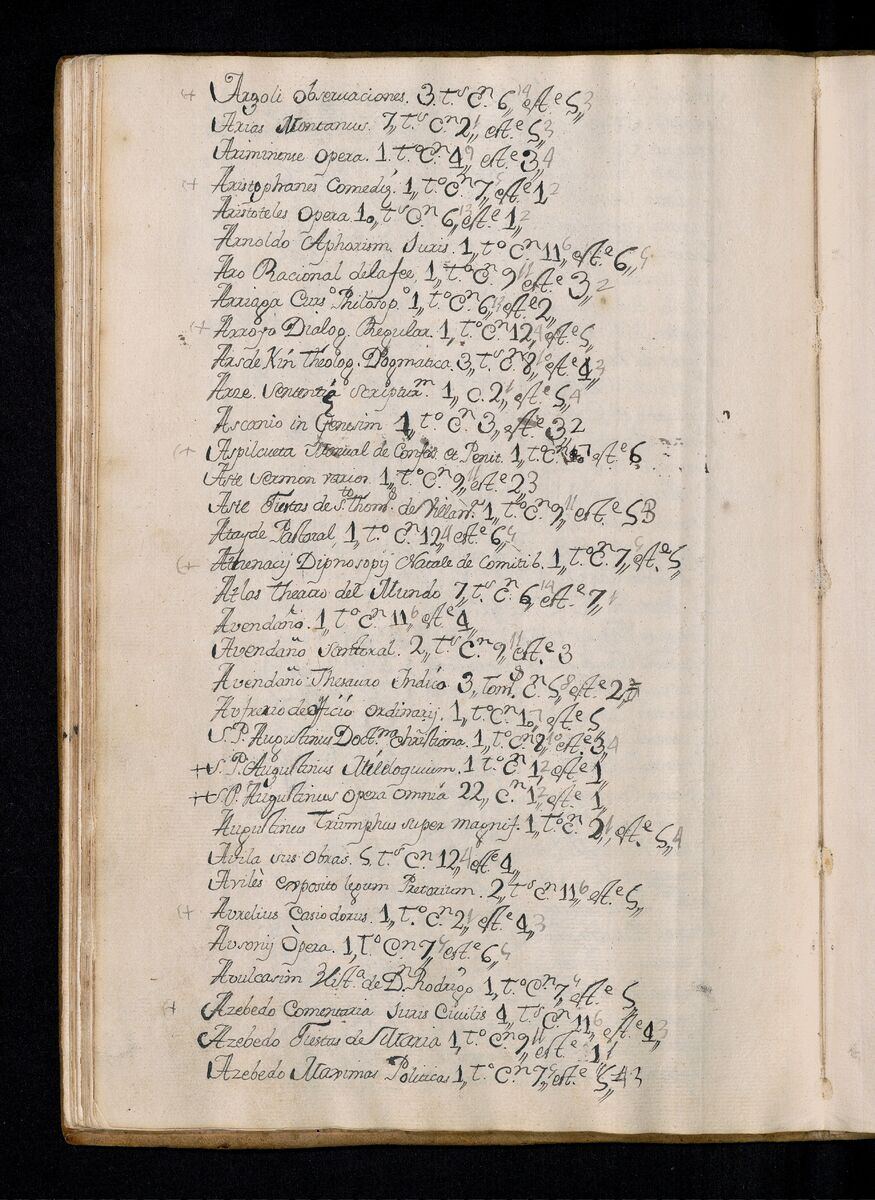 Argoli observaciones. 3. t.s C.n 6,, 14 est.e 5 3
Arias Montanus. 7,, t.s C.n 2,, 1 est.e 5,, 3
Ariminense Opera. 1. t.o C.n 4,, 9 est.e 3,, 4
Aristophanes Comediȩ. 1,, t.o C.n 7,, 5 est.e 1 2
Aristoteles Opera 10,, t.s C.n 6,, 13 est.e 1,, 2
Arnoldo Aphorism. Iuris. 1,, t.o C.n 11,, 6 est.e 6,,
Aro Racional de la fee, 1,, t.o C.n 9,, 11 est.e 3,, 2
Arriaga Curs.o Philosop.o 1,, t.o C.n 6,, 14 est.e 2,,
Arroyo Dialog. Regular. 1,, t.o C.n 12,, 4 est.e 5,,
Arsdekin Theolog. Dogmatica. 3,, t.s C.n 8,, 10 est.e 4,, 3
Arze. Sententiȩ Scriptur.m 1,, C. 2,, 1 est.e 5,, 4
Ascanio in Genesim 1,, t.o C.n 3,, est.e 3 2
Aspilcueta Manual de Confes. et Penit. 1,, t.o C.n 7 est.e 6
Aste Sermon varior. 1,, t.o C.n 9,, 11 est.e 2 3
Aste Fiestas de S.to Thom.s de Villan.a 1,, t.o C.n 9,, 11 est.e 5 3
Atayde Pastoral, 1,, t.o C.n 12,, 4 est.e 6,,
Athenacij Dipnosopij Natale de Comitib. 1,, t.o C.n 7,, 5 est.e 5,,
Atlas theatro del Mundo 7,, t.s C.n 6,, 14 est.e 7,,
Avendaño. 1,, t.o C.n 11,, 6 est.e 4,,
Avendaño Santoral. 2,, t.s C.n 9,, 11 est.e 3
Avendaño Thesauro Indico 3,, tom.s C.n 5,, 8 est.e 2,,
Aufrerio de officio ordinarij. 1,, t.o C.n 10,, 7 est.e 5
S. P. Augustinus Doct.m christiana 1,, t.o C.n 8,, 10 est.e 3,, 4
+ S. P. Augustinus Milleloquium. 1 t.o C.n 1,, 2 est.e 1,,
+ S. P. Augustinus Opera Omniá 22,, C.n 1,, 2 est.e 1,,
Augustinus Triumphus super magnif. 1,, t.o C.n 2,, 1 est.e 5,, 4
Avila sus Obras. 5. t.s C.n 12,, 4 est.e 4,,
Avilès exposito legum Pretorium. 2,, t.s C.n 11,, 6 est.e 5,,
Aurelius Casiodorus. 1,, t.o C.n 2,, 1 est.e 4,, 3
Ausonij Òpera. 1,, t.o C.n 7,, 5 est.e 6,,
Avulcasim Hist.a de D.n Rodrigo 1,, t.o C.n 7,, est.e 5,,
Azebedo Comentaria Iuris Civilis 4,, t.s C.n 11,, 6 est.e 4,, 3
Azebedo Fiestas de Maria 1,, t.o C.n 9,, 11 est.e 1,, 1
Azebedo Maximas Politicas 1,, t.o C.n 7,, 5 est.e 5,,